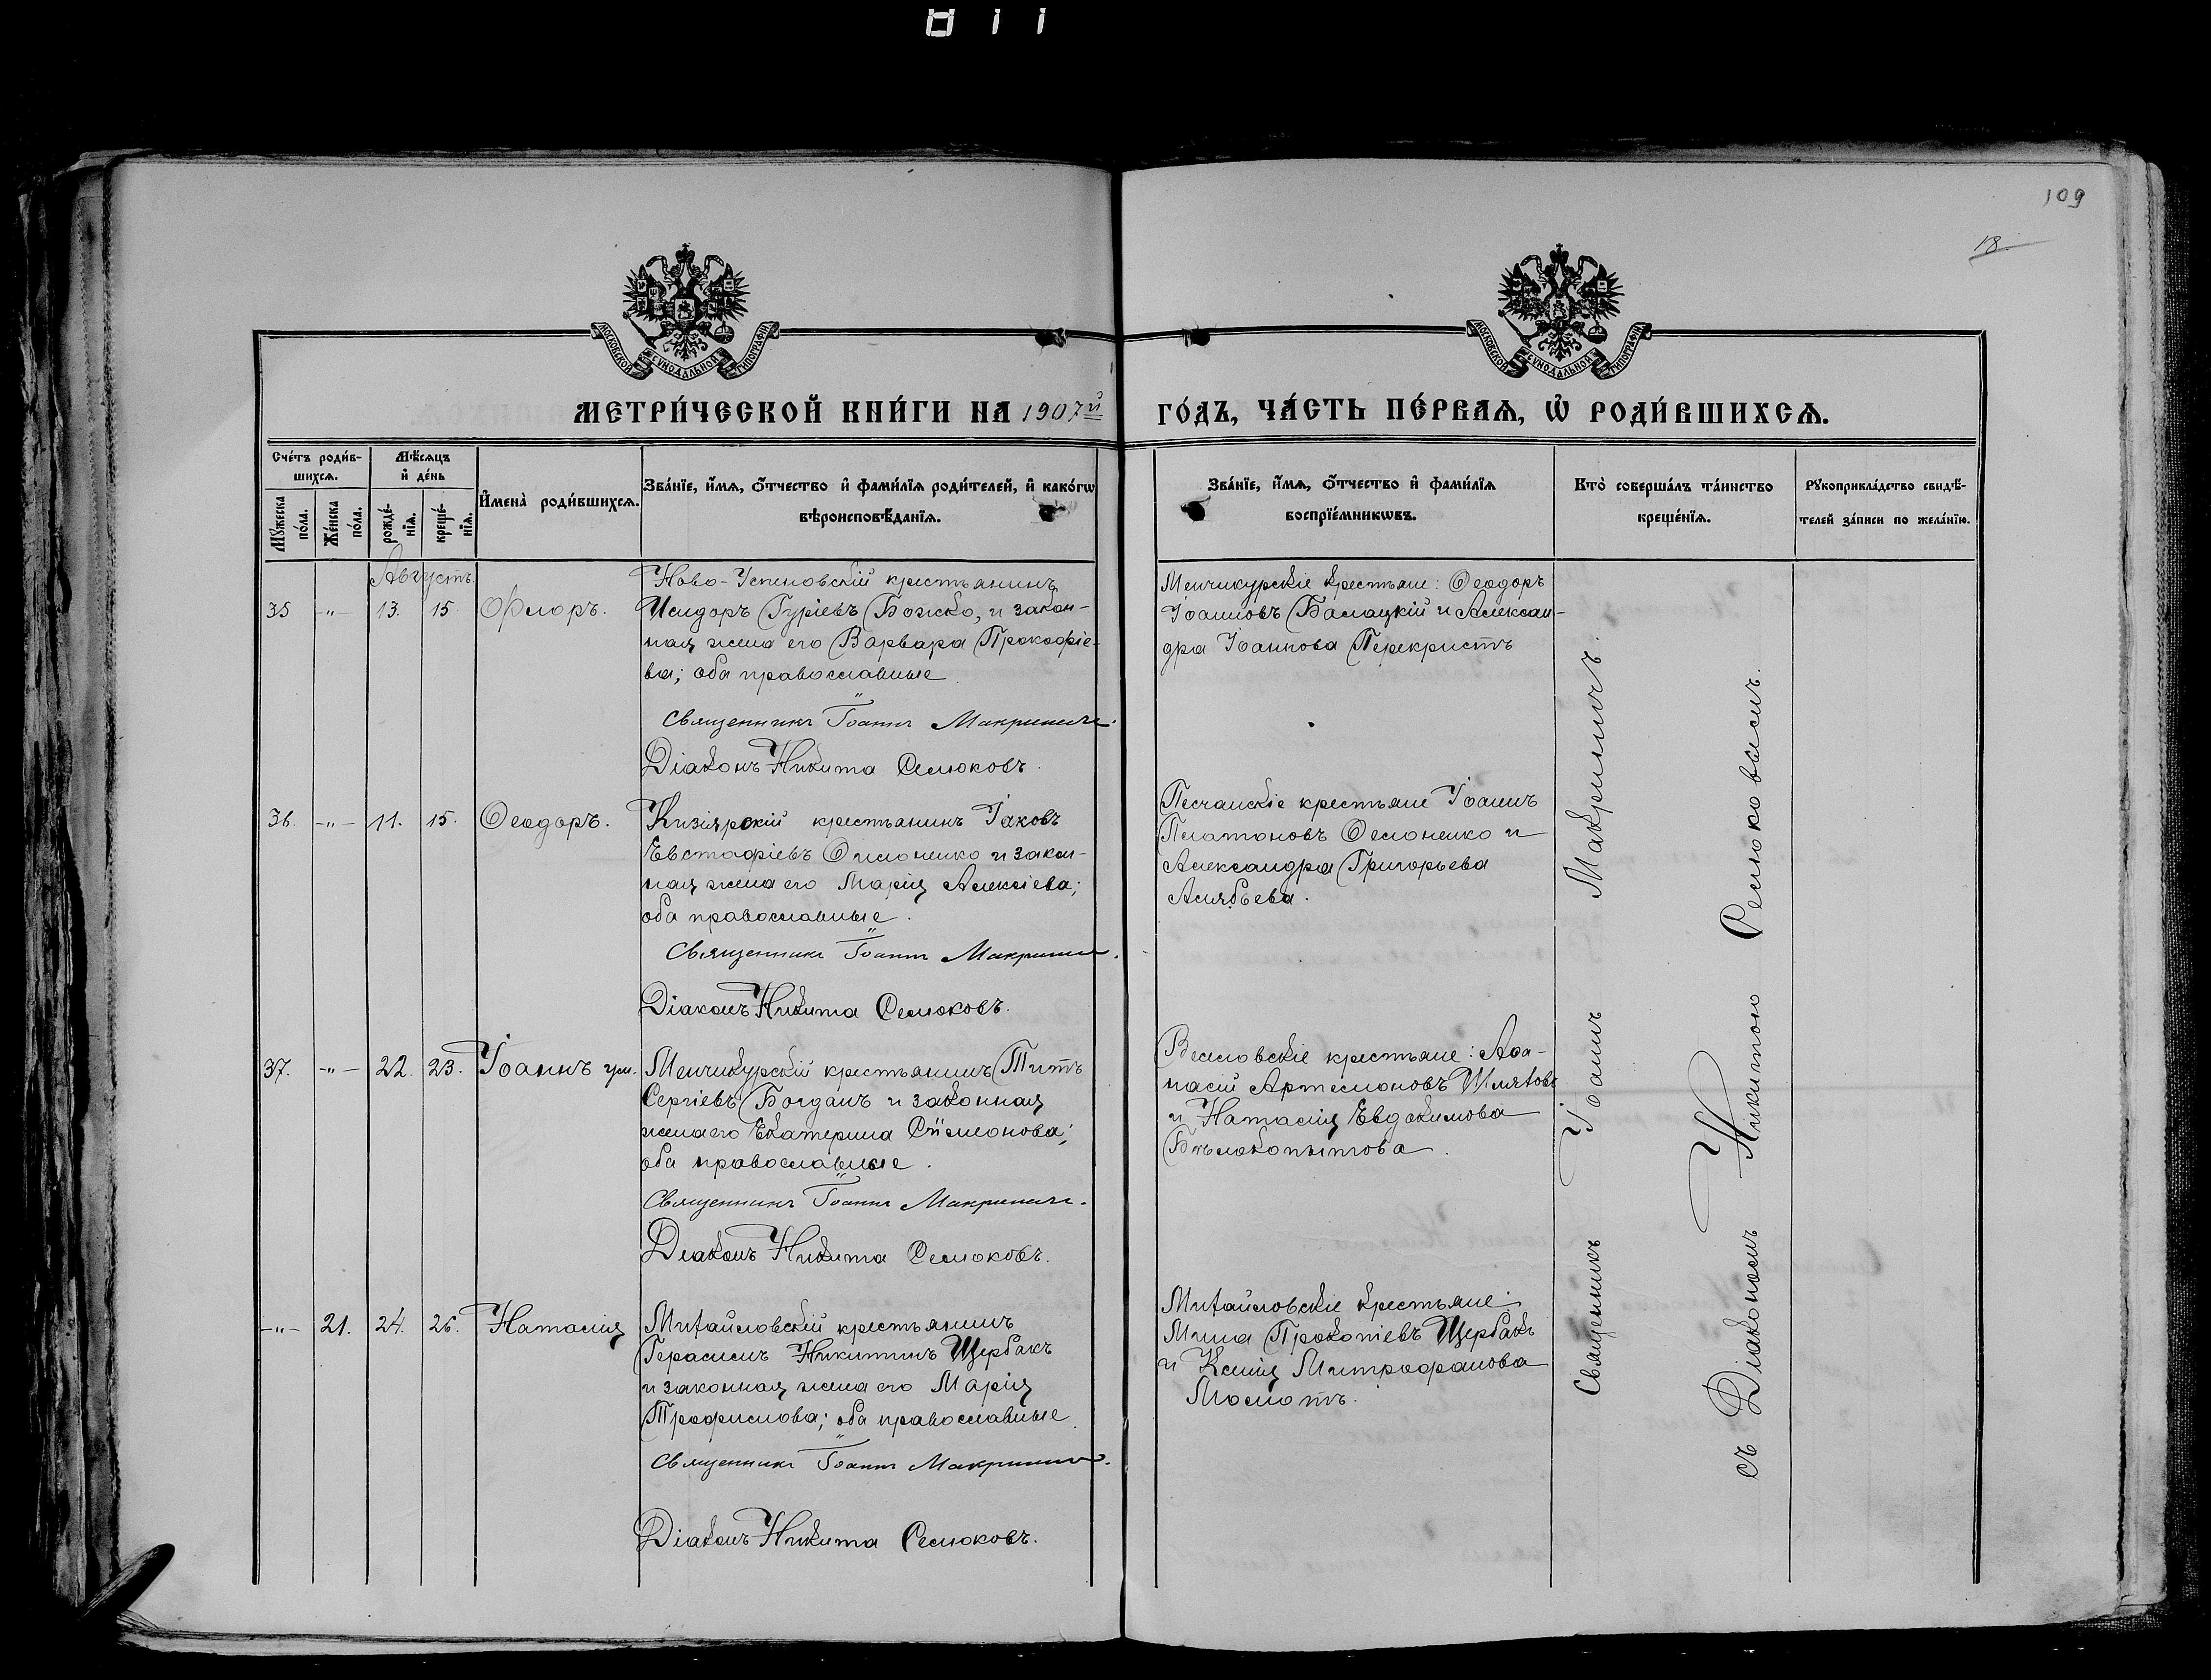 811
109
18
МОСКОВСКОЙ СУНОДАЛЬНОЙ ТИПОГРАФІИ
МОСКОВСКОЙ СУНОДАЛЬНОЙ ТИПОГРАФІИ
МЕТРИ́ЧЕСКОЙ КНИ́ГИ НА 1907й ГО́ДЪ, ЧА́СТЬ ПЕ́РВАѦ, Ѡ҆ РОДИ́ВШИХСѦ.
Сче́тъ роди́в-
шихсѧ.
Мѣ́сѧцъ
и҆ де́нь
Мꙋ́жеска
по́ла.
Же́нска
по́ла.
рожде́-
нїѧ.
креще́-
нїѧ.
И҆мена̀ роди́вшихсѧ.
Зва́нїе, и҆́мѧ, ѻ҆́тчество и҆ фами́лїѧ роди́телей, и҆ како́гѡ
вѣроисповѣ́данїѧ.
Зва́нїе, и҆́мѧ, ѻ҆́тчество и҆ фами́лїѧ
воспрїе́мникѡвъ.
Кто̀ соверша́лъ та́инство
креще́нїѧ.
Рꙋкоприкла́дство свидѣ́-
телей за́писи по жела́нїю.
Августъ.
35 -„- 13. 15. Ѳлоръ.
Ново-Успеновскій крестьянинъ
Исидоръ Гуріевъ Божко, и закон-
ная жена его Варвара Прокофіе-
ва; оба православные.
Священникъ Іоаннъ Макриничъ.
Діаконъ Никита Семюковъ.
Менчикурскіе крестьяне: Ѳеодоръ
Іоанновъ Балацкій и Алексан-
дра Іоаннова Перекристъ
36. -„- 11. 15. Ѳеодоръ.
Кизіярскій крестьянинъ Іаковъ
Евстафіевъ Филоненко и закон-
ная жена его Марія Алексіева;
оба православные.
Священникъ Іоаннъ Макриничъ.
Діаконъ Никита Семюковъ.
Песчанскіе крестьяне Іоаннъ
Платоновъ Филоненко и
Александра Григорьева
Алябьева.
37. -„- 22. 23. Іоаннъ ум.
Менчикурскій крестьянинъ Титъ
Сергіевъ Богданъ и законная
жена его Екатерина Сѵмеонова;
оба православные.
Священникъ Іоаннъ Макриничъ.
Діаконъ Никита Семюковъ.
Веселовскіе крестьяне: Аѳа-
насій Артемоновъ Шляховъ
и Наталія Евдокимова
Бѣлокопытова.
-„- 21. 24. 26. Наталія
Михайловскій крестьянинъ
Герасимъ Никитинъ Щербакъ
и законная жена его Марія
Трофимова; оба православные.
Священникъ Іоаннъ Макриничъ.
Діаконъ Никита Семюковъ.
Михайловскіе крестьяне:
Мина Прокопіевъ Щербакъ
и Ксенія Митрофанова
Молотъ.
Священникъ Іоаннъ Макриничъ.
съ Діакономъ Никитою Семюковымъ.